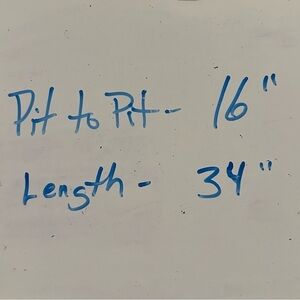 Pit to Pit - 16"
Length - 34"